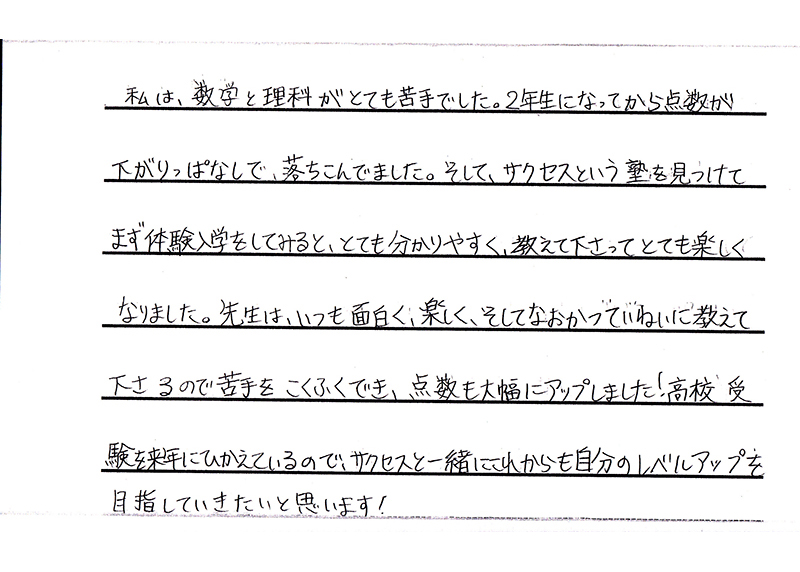 私は、数学と理科がとても苦手でした。2年生になってから点数が
下がりっぱなしで、落ちこんでました。そして、サクセスという塾を見つけて
まず体験入学をしてみると、とても分かりやすく、教えて下さってとても楽しく
なりました。先生は、いつも面白く、楽しく、そしてなおかつていねいに教えて
下さるので苦手をこくふくでき、点数も大幅にアップしました!高校受
験を来年にひかえているので、サクセスと一緒にこれからも自分のレベルアップを
目指していきたいと思います!